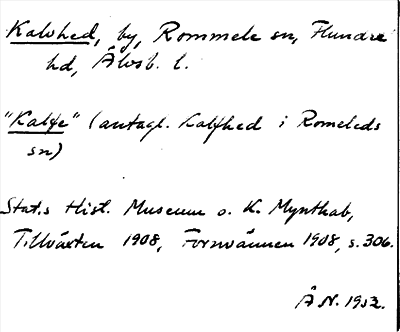 Kalvhed, by, Rommele sn, Flundre
hd, Älvsb. l.
"Kalfe" (antagl. Kalfhed i Romeleds
sn)
Stat:s Hist. Museum o. K. Myntkab,
Tillväxten 1908, Fornvännen 1908, s. 306.
Å N. 1952.